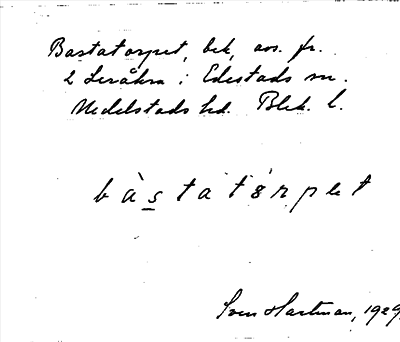 Bastatorpet, bek. avs. fr.
2 Leråkra i Edestads sn.
Medelstads hd. Blek. l.
bàstatórpet
Sven Hartman, 1929.